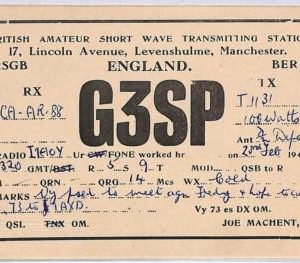 RITISH AMATEUR SHORT WAVE TRANSMITTING STATIO
17, Lincoln Avenue, Levenshulme, Manchester.
RSGB ENGLAND. BER
RX TX
CA-AR-88 G3SP T1131
100 Watts
RADIO I1AOY Ur CW FONE worked hr 23rd Feb 194
320 GMT/BST R 5 S 9 T MOD. QSB to R
M QRN QRG 14 Mcs WX Cold
MARKS Vy to meet agn & hope to
73 to I1AXD. Vy 73 es DX OM.
QSL TNX OM. JOE MACHENT,